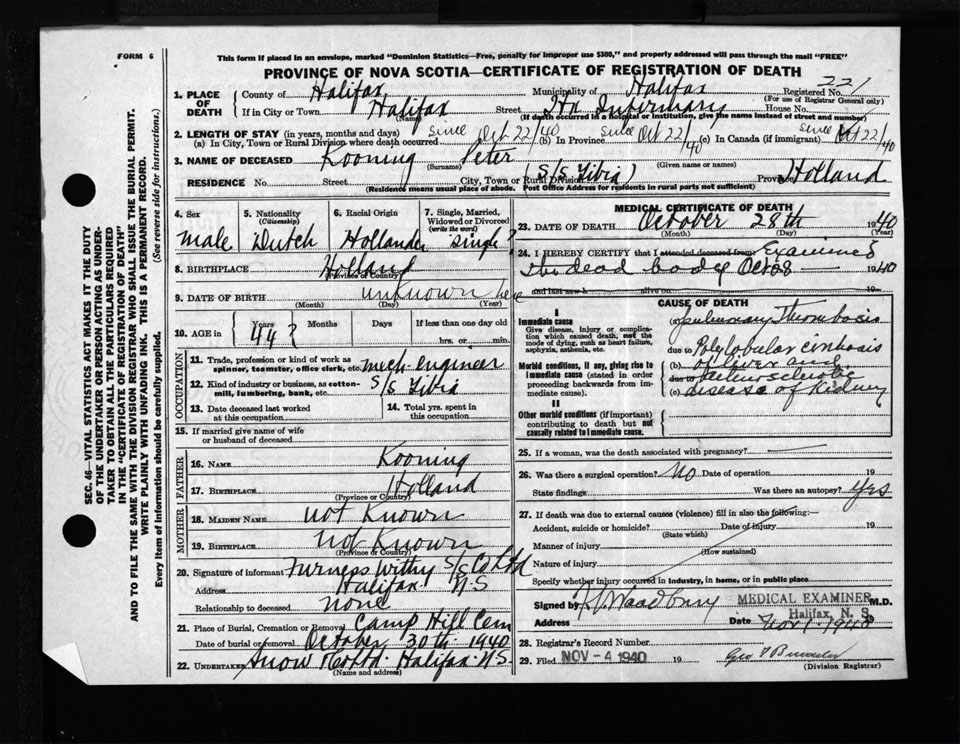 FORM 6
This form if placed in an envelope, marked "Dominion Statistics—Free, penalty for improper use $300," and properly addressed will pass through the mail "FREE"
PROVINCE OF NOVA SCOTIA—CERTIFICATE OF REGISTRATION OF DEATH
221
1. PLACE OF DEATH County of Halifax Municipality of Halifax Registered No.
(For use of Registrar General only)
If in City or Town Halifax Street Hx Infirmary House No.
(Name) (If death occurred in a hospital or institution, give the name instead of street and number)
2. LENGTH OF STAY (in years, months and days)
(a) In City, Town or Rural Division where death occurred since Oct 22/40 (b) In Province since Oct 22/40 (c) In Canada (if immigrant) since Oct 22/40
3. NAME OF DECEASED Kooning Peter
(Surname) (Given name or names)
RESIDENCE No. Street City, Town or Rural Division (S/S Libia) Province Holland
(Residence means usual place of abode. Post Office Address for residents in rural parts not sufficient)
4. Sex male
5. Nationality (Citizenship) Dutch
6. Racial Origin Hollander
7. Single, Married, Widowed or Divorced (write the word) single?
8. BIRTHPLACE Holland
9. DATE OF BIRTH unknown here
(Month) (Day) (Year)
10. AGE in Years Months Days If less than one day old
44? hrs. or min.
OCCUPATION
11. Trade, profession or kind of work as spinner, teamster, office clerk, etc. mech-engineer
12. Kind of industry or business, as cotton-mill, lumbering, bank, etc. S/S Libia
13. Date deceased last worked at this occupation
14. Total yrs. spent in this occupation
15. If married give name of wife or husband of deceased
FATHER
16. NAME Kooning
17. BIRTHPLACE Holland
(Province or Country)
MOTHER
18. MAIDEN NAME not Known
19. BIRTHPLACE not Known
(Province or Country)
20. Signature of informant Furness Withy S/S Co Ltd
Address Halifax N S
Relationship to deceased none
21. Place of Burial, Cremation or Removal Camp Hill Cem
Date of burial or removal October 30th 1940
22. UNDERTAKER Snow & Co Ltd Halifax N.S.
(Name and address)
MEDICAL CERTIFICATE OF DEATH
23. DATE OF DEATH October 28th 1940
(Month) (Day) (Year)
24. I HEREBY CERTIFY that I attended deceased from Examined
the dead body Oct 28 1940
and last saw h alive on 19
CAUSE OF DEATH
I
Immediate cause
Give disease, injury or complication which caused death, not the mode of dying, such as heart failure, asphyxia, asthenia, etc.
(a) pulmonary Thrombosis
due to Polylobular cirrhosis
Morbid conditions, if any, giving rise to immediate cause (stated in order proceeding backwards from immediate cause).
(b) of liver and
due to arteriosclerotic
(c) disease of Kidney
II
Other morbid conditions (if important) contributing to death but not causally related to immediate cause.
25. If a woman, was the death associated with pregnancy? —
26. Was there a surgical operation? No Date of operation 19
State findings Was there an autopsy? Yes
27. If death was due to external causes (violence) fill in also the following:—
Accident, suicide or homicide? Date of injury 19
(State which)
Manner of injury
(How sustained)
Nature of injury
Specify whether injury occurred in industry, in home, or in public place
Signed by M.D.
MEDICAL EXAMINER
Halifax, N. S.
Address Date Nov 1 1940
28. Registrar's Record Number
29. Filed NOV - 4 1940 19
(Division Registrar)
SEC. 46—VITAL STATISTICS ACT MAKES IT THE DUTY
OF THE UNDERTAKER OR PERSON ACTING AS UNDER-
TAKER TO OBTAIN ALL THE PARTICULARS REQUIRED
IN THE "CERTIFICATE OF REGISTRATION OF DEATH"
AND TO FILE THE SAME WITH THE DIVISION REGISTRAR WHO SHALL ISSUE THE BURIAL PERMIT.
WRITE PLAINLY WITH UNFADING INK. THIS IS A PERMANENT RECORD.
Every item of information should be carefully supplied. (See reverse side for instructions.)